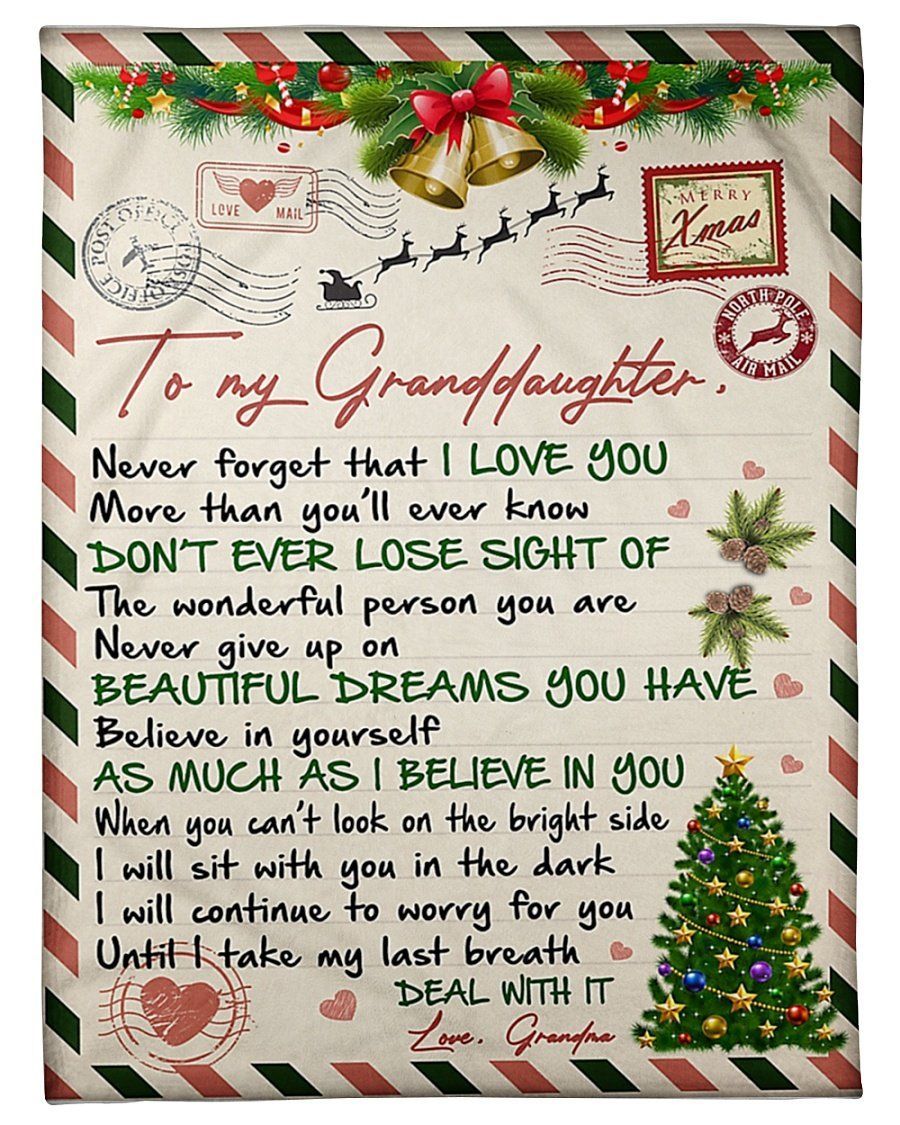 LOVE MAIL
POST OFFICE
POST OFFICE
MERRY
Xmas
NORTH POLE
AIR MAIL
To my Granddaughter,
Never forget that I LOVE YOU
More than you'll ever know
DON'T EVER LOSE SIGHT OF
The wonderful person you are
Never give up on
BEAUTIFUL DREAMS YOU HAVE
Believe in yourself
AS MUCH AS I BELIEVE IN YOU
When you can't look on the bright side
I will sit with you in the dark
I will continue to worry for you
Until I take my last breath
DEAL WITH IT
Love, Grandma